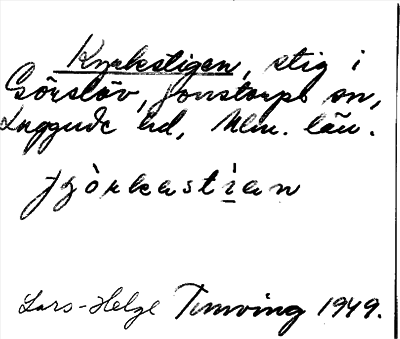 Kyrkstigen, stig i
Görslöv, Jonstorps sn,
Luggude hd, Mlm. län.
fjö̀rkastian
Lars-Helge Tunving 1949.